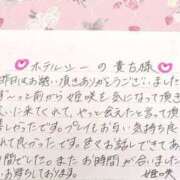 ホテルソーの貴方様
昨日はお誘い頂きありがとうございました
ずーっと前から姫咲を気になって頂き
に来てくれて、やっと会えたと言って頂
しかったです。プレイもお互い気持ち良
れて良かったです。色々お話しできてあ
間でした。またお時間が合いました
お待ちしております。
姫咲